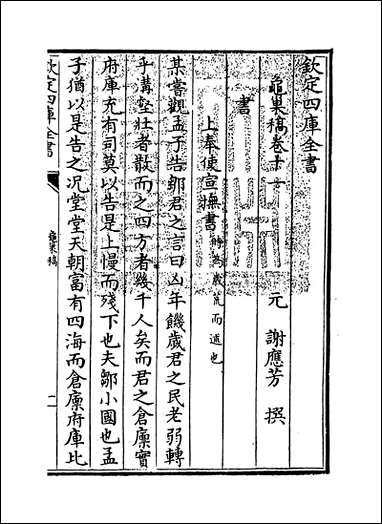 欽定四庫全書
龜巢稿卷十一
元 謝應芳 撰
書
上奉使宣撫書 為歲荒而也
某嘗觀孟子告鄒君之言曰凶年饑歲君之民老弱轉
乎溝壑壯者散而之四方者幾千人矣而君之倉廩實
府庫充有司莫以告是上慢而殘下也夫鄒小國也孟
子猶以是告之况堂堂天朝富有四海而倉廩府庫比
欽定四庫全書
龜巢稿
一